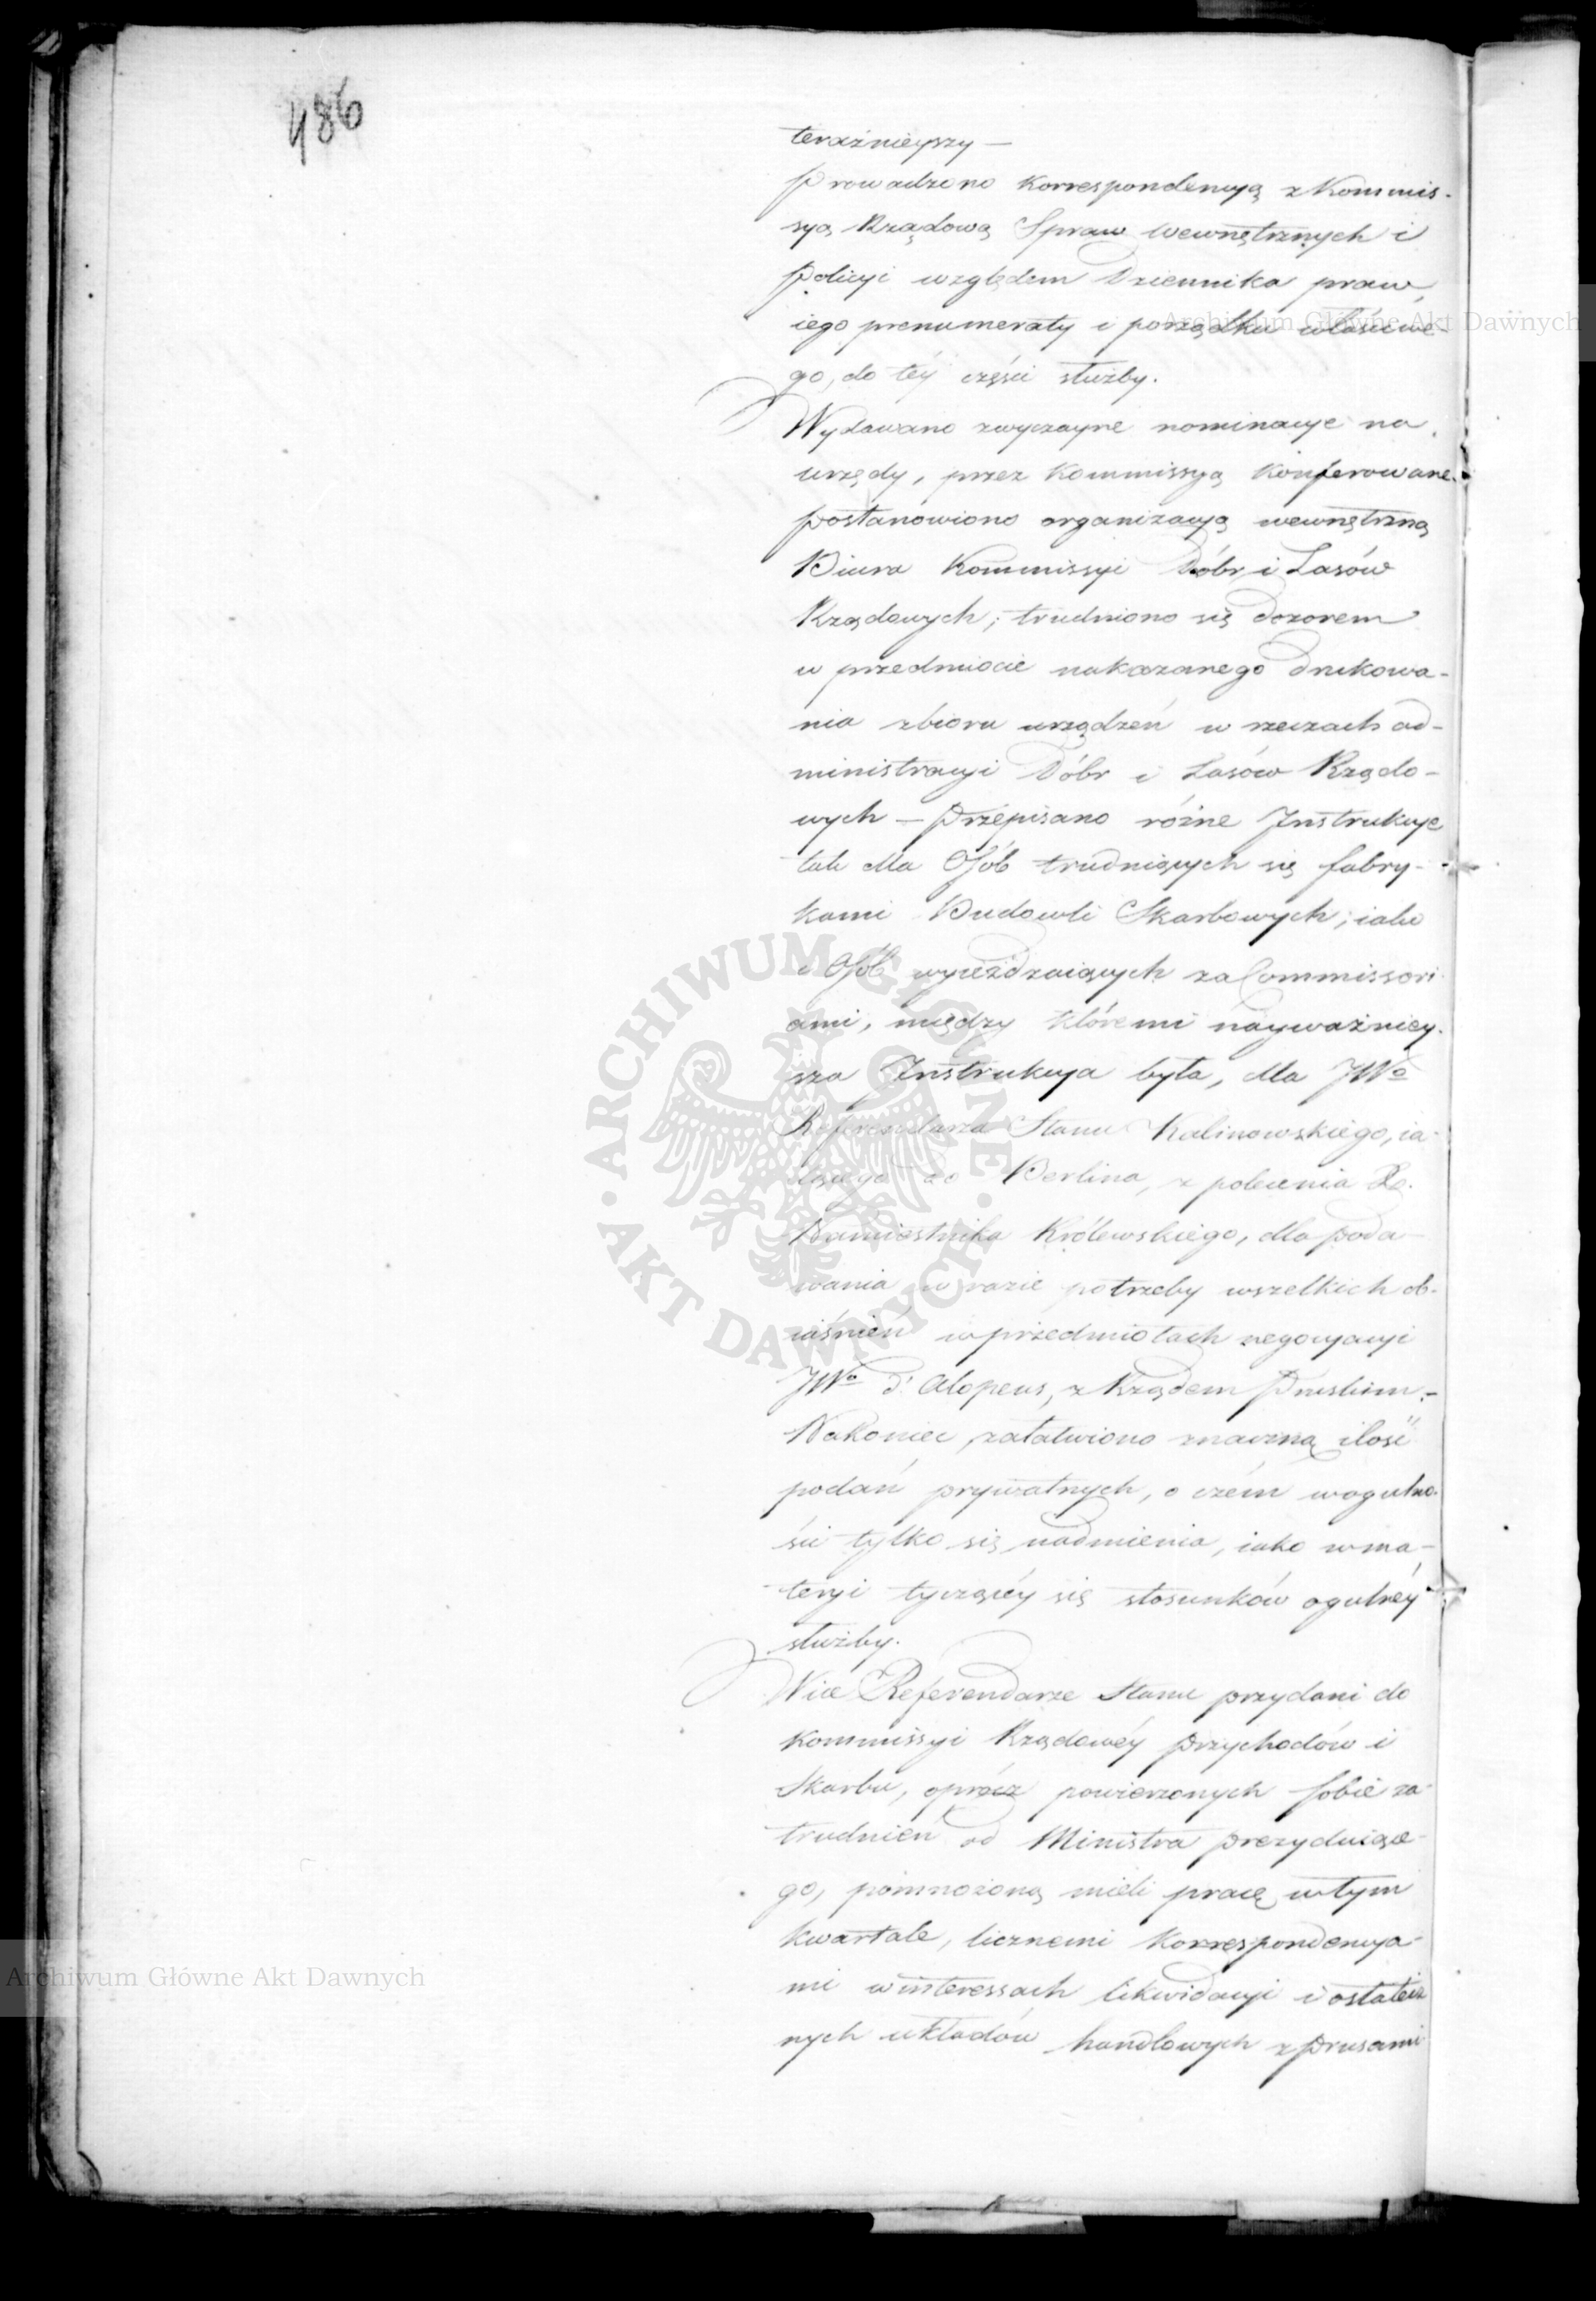 486
teraźnieyszy —
Prowadzono korrespondencyą z Kommis-
syą Rządową Spraw Wewnętrznych i
Policyi względem Dziennika praw,
iego prenumeraty i porządku właściwe-
go, do téy części służby.
Wydawano zwyczayne nominacye na
urzędy, przez Kommissyą konferowane.
Postanowiono organizacyą wewnętrzną
Biura Kommissyi Dóbr i Lasów
Rządowych; trudniono się dozorem
w przedmiocie nakazanego drukowa-
nia zbioru urządzeń w rzeczach ad-
ministracyi Dóbr i Lasów Rządo-
wych — Przepisano różne Instrukcye
tak dla Osób trudniących się fabry-
kami Budowli Skarbowych; iako
i Osób wyieżdzaiących za Commissori
ami, między któremi nayważniey-
sza Instrukcya była, dla JWo
Referendarza Stanu Kalinowskiego, ia-
dącego do Berlina, z polecenia Xa.
Namiestnika Królewskiego, dla poda-
wania w razie potrzeby wszelkich ob-
iaśnień w przedmiotach negocyacyi
JWo d'Alopeus, z Rządem Pruskim.—
Nakoniec, załatwiono znaczną ilość
podań prywatnych, o czém w ogulno-
ści tylko się nadmienia, iako w ma-
teryi tyczącéy się stosunków ogulnéy
służby.
Vice Referendarze Stanu przydani do
Kommissyi Rządowéy Przychodów i
Skarbu, oprócz powierzonych sobie za-
trudnien od Ministra prezyduiące-
go, pomnożoną mieli pracę w tym
kwartale, licznemi korrespondencya-
mi w interessach likwidacyi i ostatecz
nych układów handlowych z Prusami
Archiwum Główne Akt Dawnych
ARCHIWUM GŁÓWNE · AKT DAWNYCH ·
Archiwum Główne Akt Dawnych